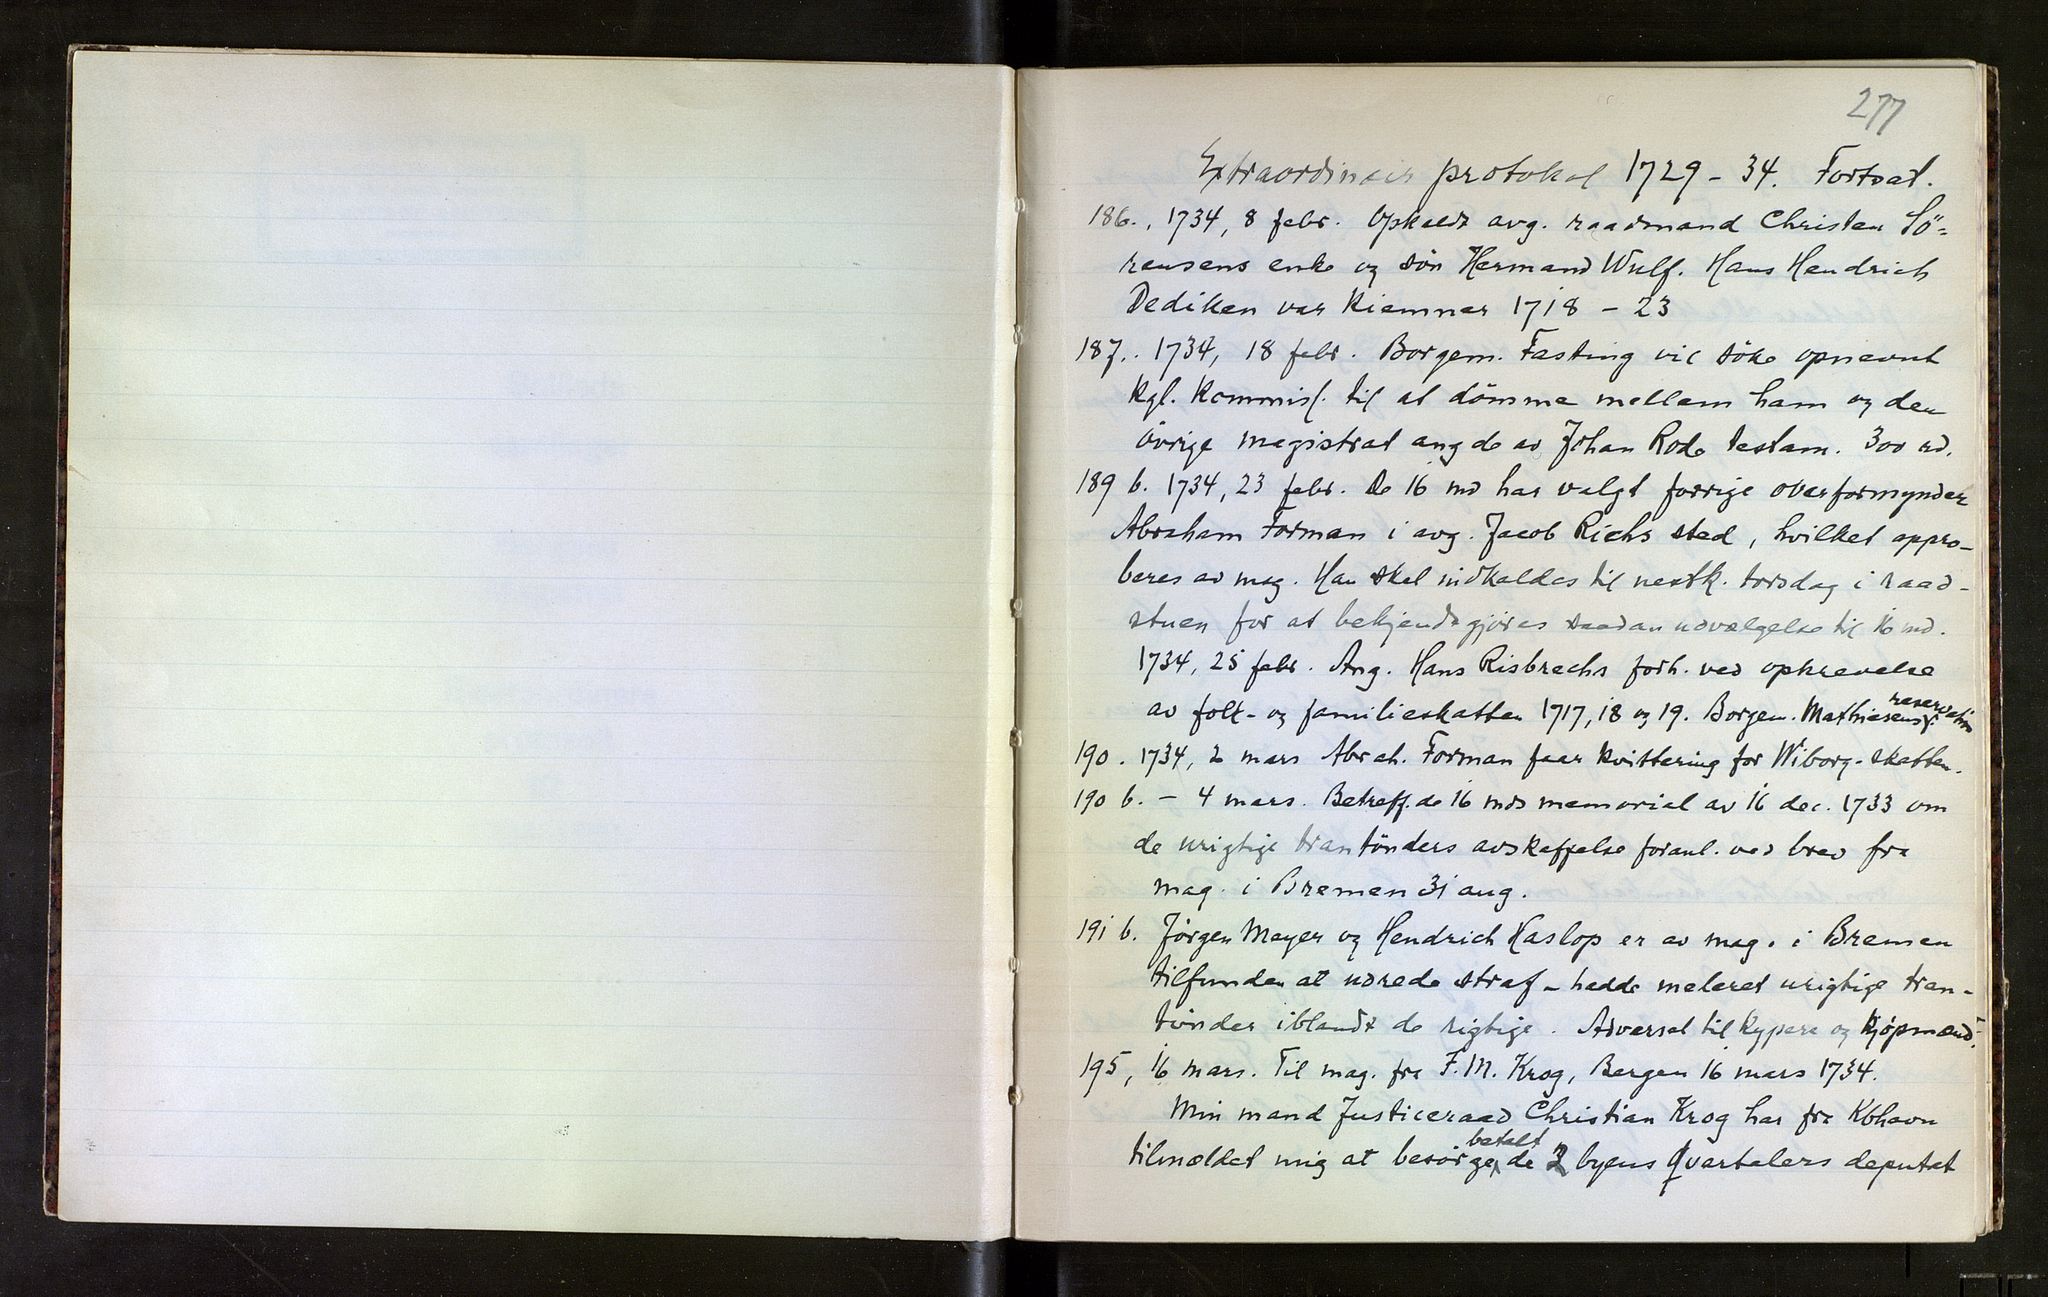 277
Extraordinair protokol 1729 - 34. Fortsat.
186., 1734, 8 febr. Opkaldt avg. raadmand Christen Sö-
rensens enke og sön Hermand Wulf. Hans Hendrich
Dediken var kiemner 1718 - 23
187.. 1734, 18 febr. Borgem. Fasting vil söke opnævnt
kgl. kommis. til at dömme mellem ham og den
övrige magistrat ang de av Johan Rode testam. 300 rd.
189 b. 1734, 23 febr. De 16 md har valgt forrige overformynder
Abraham Forman i avg. Jacob Richs sted, hvilket appro-
beres av mag. Han skal indkaldes til nestk. torsdag i raad-
stuen for at bekjendtgjöres saadan udvælgelse til 16 md.
1734, 25 febr. Ang. Hans Risbrechs forh. ved opkrevelse
av folk- og familieskatten 1717, 18 og 19. Borgem. Mathiesens reservation
190. 1734, 2 mars Abrah. Forman faar kvittering for Wiborg-skatten.
190 b. - 4 mars. Betreff. de 16 mds memorial av 16 dec. 1733 om
de urigtige trantönders avskaffelse foranl. ved brev fra
mag. i Bremen 31 aug.
191 b. Jörgen Meyer og Hendrich Haslop er av mag. i Bremen
tilfunden at udrede straf - hadde meleret urigtige tran-
tönder iblandt de rigtige. Adversel til kypere og kjöpmænd.
195, 16 mars. Til mag. fra F. M. Krog, Bergen 16 mars 1734.
Min mand Justiceraad Christian Krog har fra Kbhavn
tilmeldet mig at besörge betalt de 2 byens qvartalers deputat